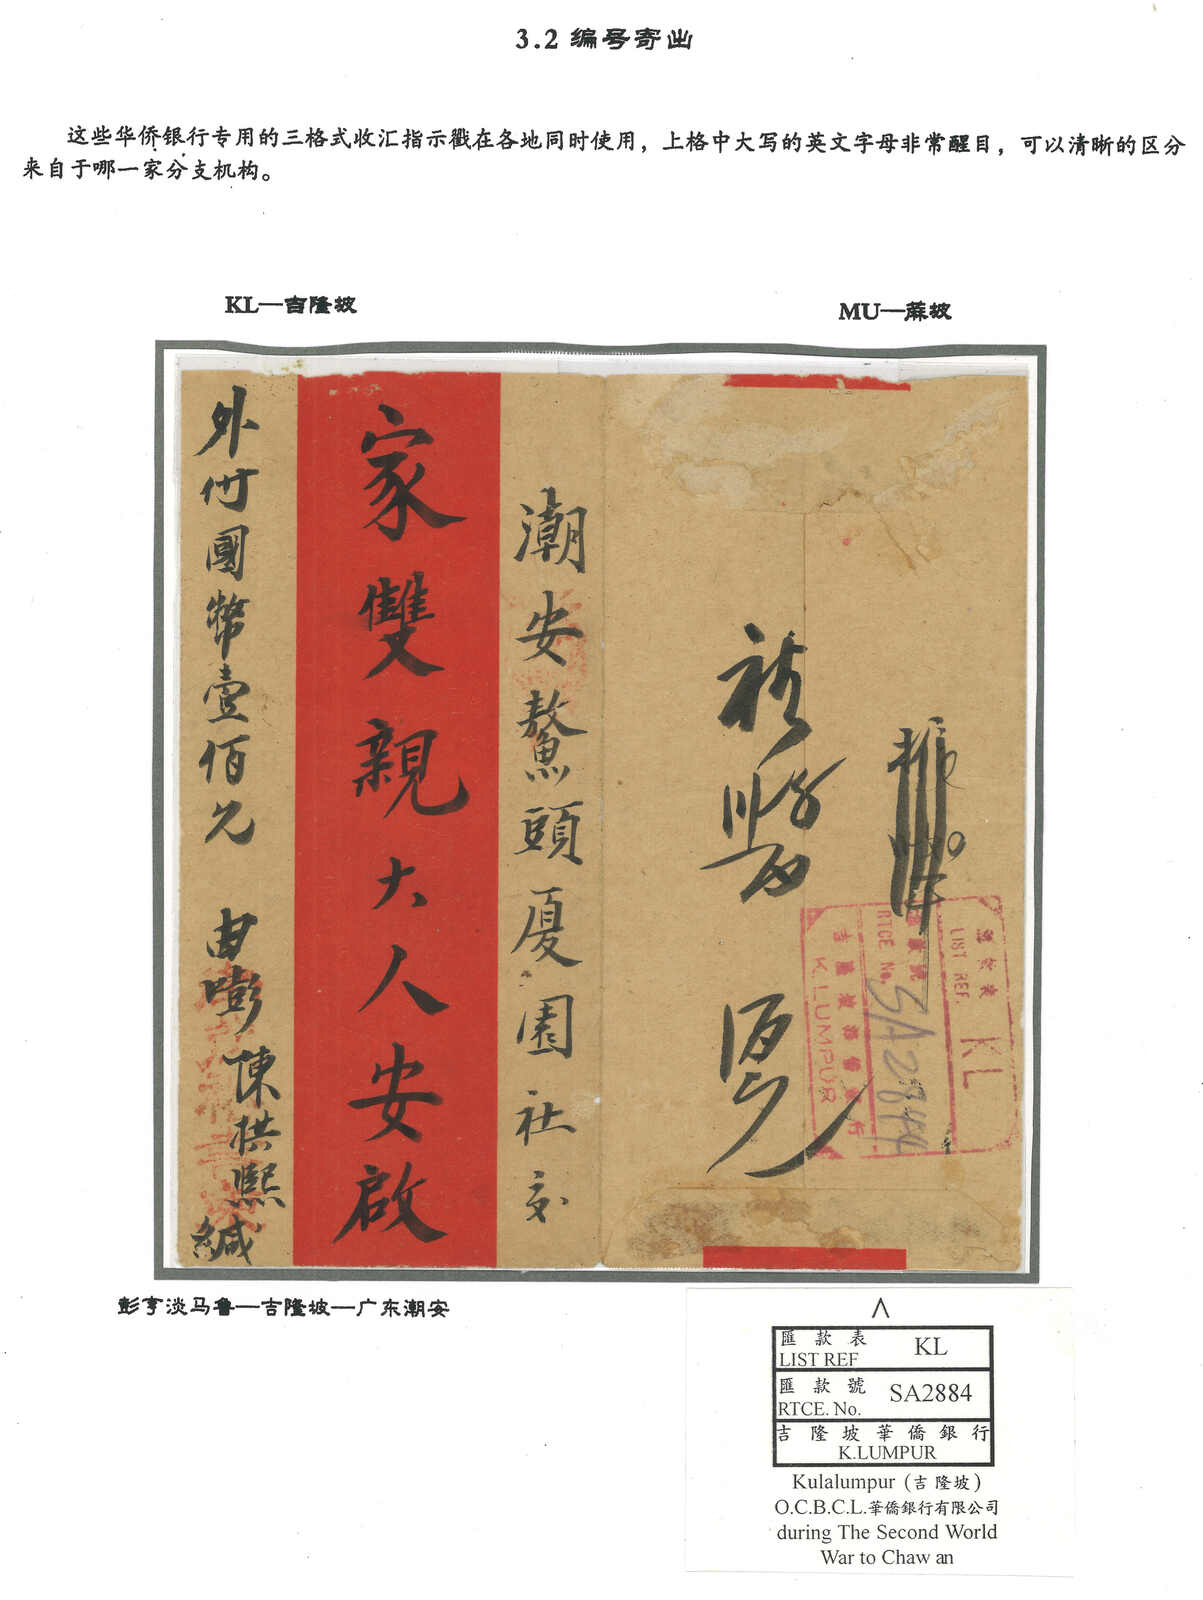 3.2 编号寄出
这些华侨银行专用的三格式收汇指示戳在各地同时使用，上格中大写的英文字母非常醒目，可以清晰的区分
来自于哪一家分支机构。
KL—吉隆坡
MU—蔴坡
潮安鰲頭厦園社交
家雙親大人安啟
外付國幣壹佰元 由彭 陳拱熙緘
LIST REF.
KL
RTCE No.
SA2844
吉隆坡華僑銀行
K.LUMPUR
彭亨淡马鲁—吉隆坡—广东潮安
匯款表 KL
LIST REF
匯款號 SA2884
RTCE. No.
吉隆坡華僑銀行
K.LUMPUR
Kulalumpur (吉隆坡)
O.C.B.C.L.華僑銀行有限公司
during The Second World
War to Chaw an